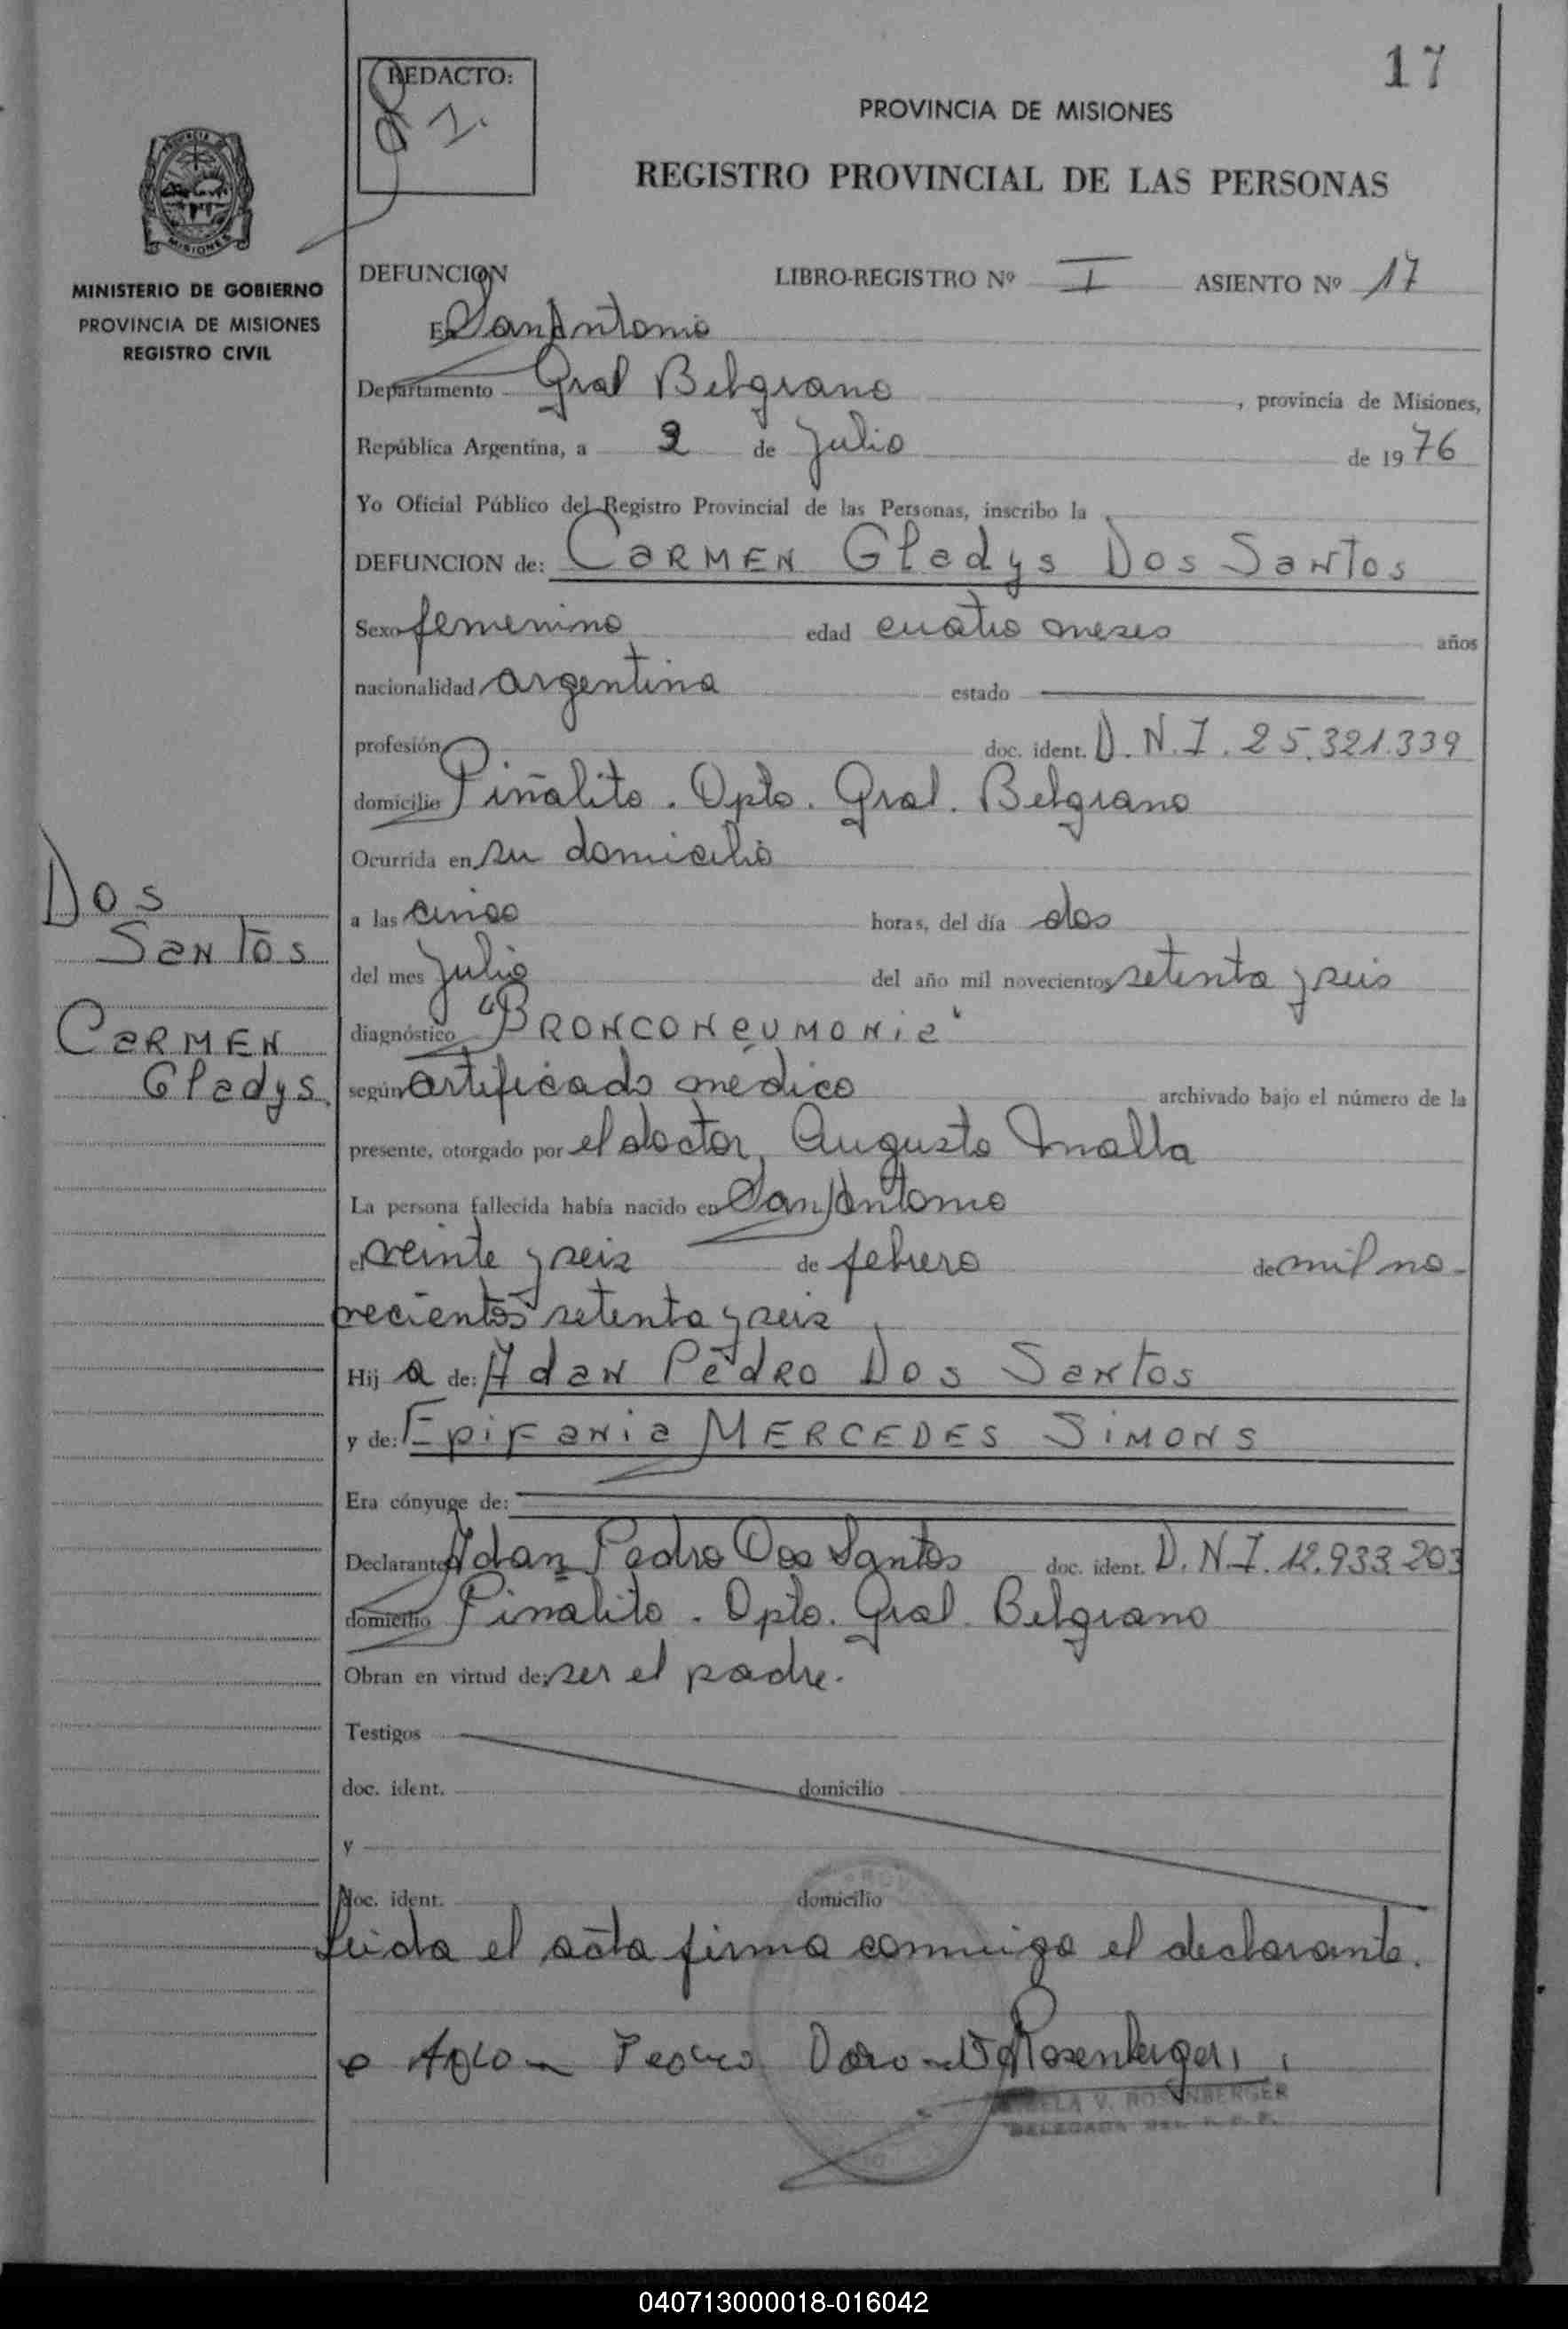 17
REDACTO:
PROVINCIA DE MISIONES
REGISTRO PROVINCIAL DE LAS PERSONAS
PROVINCIA
MISIONES
MINISTERIO DE GOBIERNO
PROVINCIA DE MISIONES
REGISTRO CIVIL
DEFUNCION LIBRO-REGISTRO Nº I ASIENTO Nº 17
En San Antonio
Departamento Gral Belgrano , provincia de Misiones,
República Argentina, a 2 de Julio de 1976
Yo Oficial Público del Registro Provincial de las Personas, inscribo la
DEFUNCION de: CARMEN Gladys Dos Santos
Sexo femenino edad cuatro meses años
nacionalidad argentina estado
profesión doc. ident. D.N.I. 25.321.339
domicilio Piñalito. Dpto. Gral. Belgrano
Ocurrida en su domicilio
a las cinco horas, del día dos
del mes Julio del año mil novecientos setenta y seis
diagnóstico "BRONCONEUMONIA"
según certificado médico archivado bajo el número de la
presente, otorgado por el doctor, Augusto Malla
La persona fallecida había nacido en San Antonio
el veinte y seis de febrero de mil no-
vecientos setenta y seis
Hija de: Adan Pedro Dos Santos
y de: Epifania MERCEDES SIMONS
Era cónyuge de:
Declarante Adan Pedro Dos Santos doc. ident. D.N.I. 12.933.203
domicilio Piñalito. Dpto. Gral. Belgrano
Obran en virtud de: ser el padre.
Testigos
doc. ident. domicilio
y
doc. ident. domicilio
Leida el acta firma conmigo el declarante.
Dos
Santos
CARMEN
Gladys
Rosenberger
V. ROSENBERGER
DELEGADA DEL R.P.P.
040713000018-016042